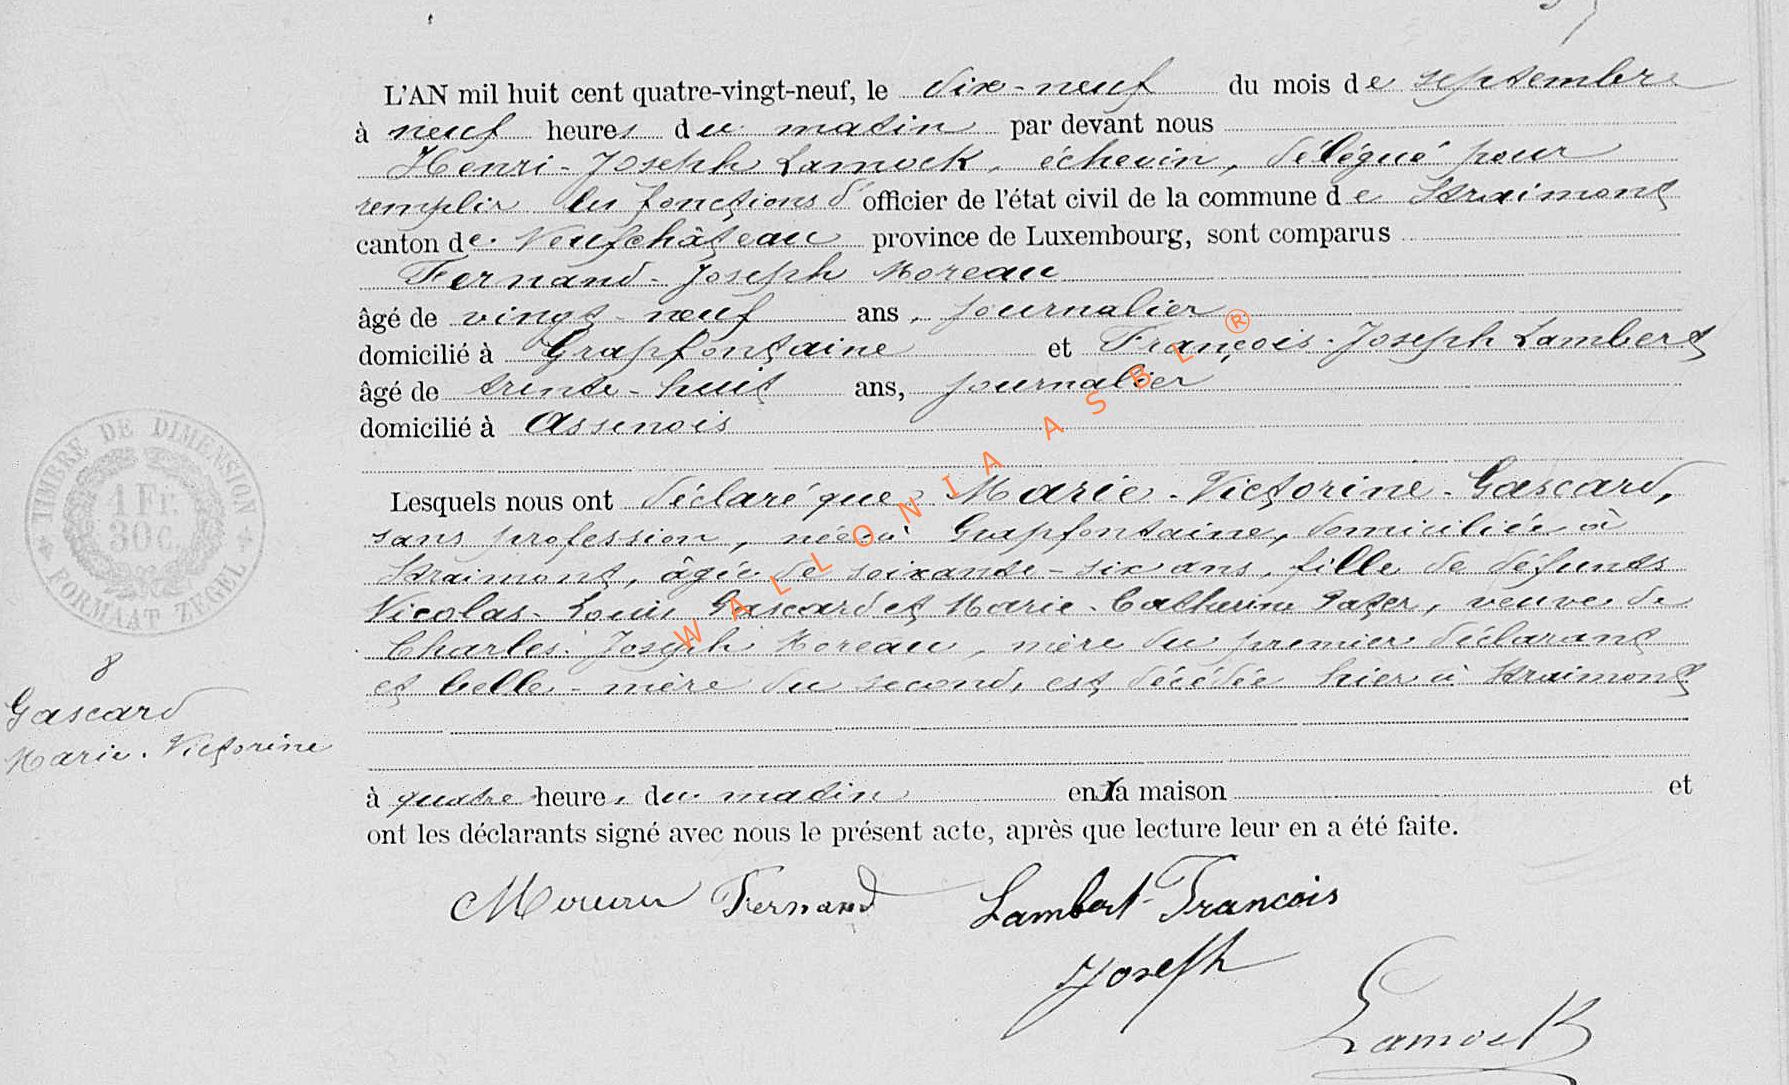 L'AN mil huit cent quatre-vingt-neuf, le dix-neuf du mois de septembre
à neuf heures du matin par devant nous
Henri-Joseph Lamock, échevin, délégué pour
remplir les fonctions d'officier de l'état civil de la commune de Straimont
canton de Neufchâteau province de Luxembourg, sont comparus
Fernand-Joseph Moreau
âgé de vingt-neuf ans, journalier
domicilié à Grapfontaine et François-Joseph Lambert
âgé de trente-huit ans, journalier
domicilié à Assenois
Lesquels nous ont déclaré que Marie-Victorine Gascard,
sans profession, née à Grapfontaine, domiciliée à
Straimont, âgée de soixante-six ans, fille de défunts
Nicolas-Louis Gascard et Marie-Catherine Pater, veuve de
Charles-Joseph Moreau, mère du premier déclarant
et belle-mère du second, est décédée hier à Straimont
à quatre heures du matin en la maison et
ont les déclarants signé avec nous le présent acte, après que lecture leur en a été faite.
Moreau Fernand Lambert François
Joseph
Lamock
TIMBRE DE DIMENSION
1 Fr.
30c.
FORMAAT ZEGEL
8
Gascard
Marie-Victorine
WALLONIA ASBL ®